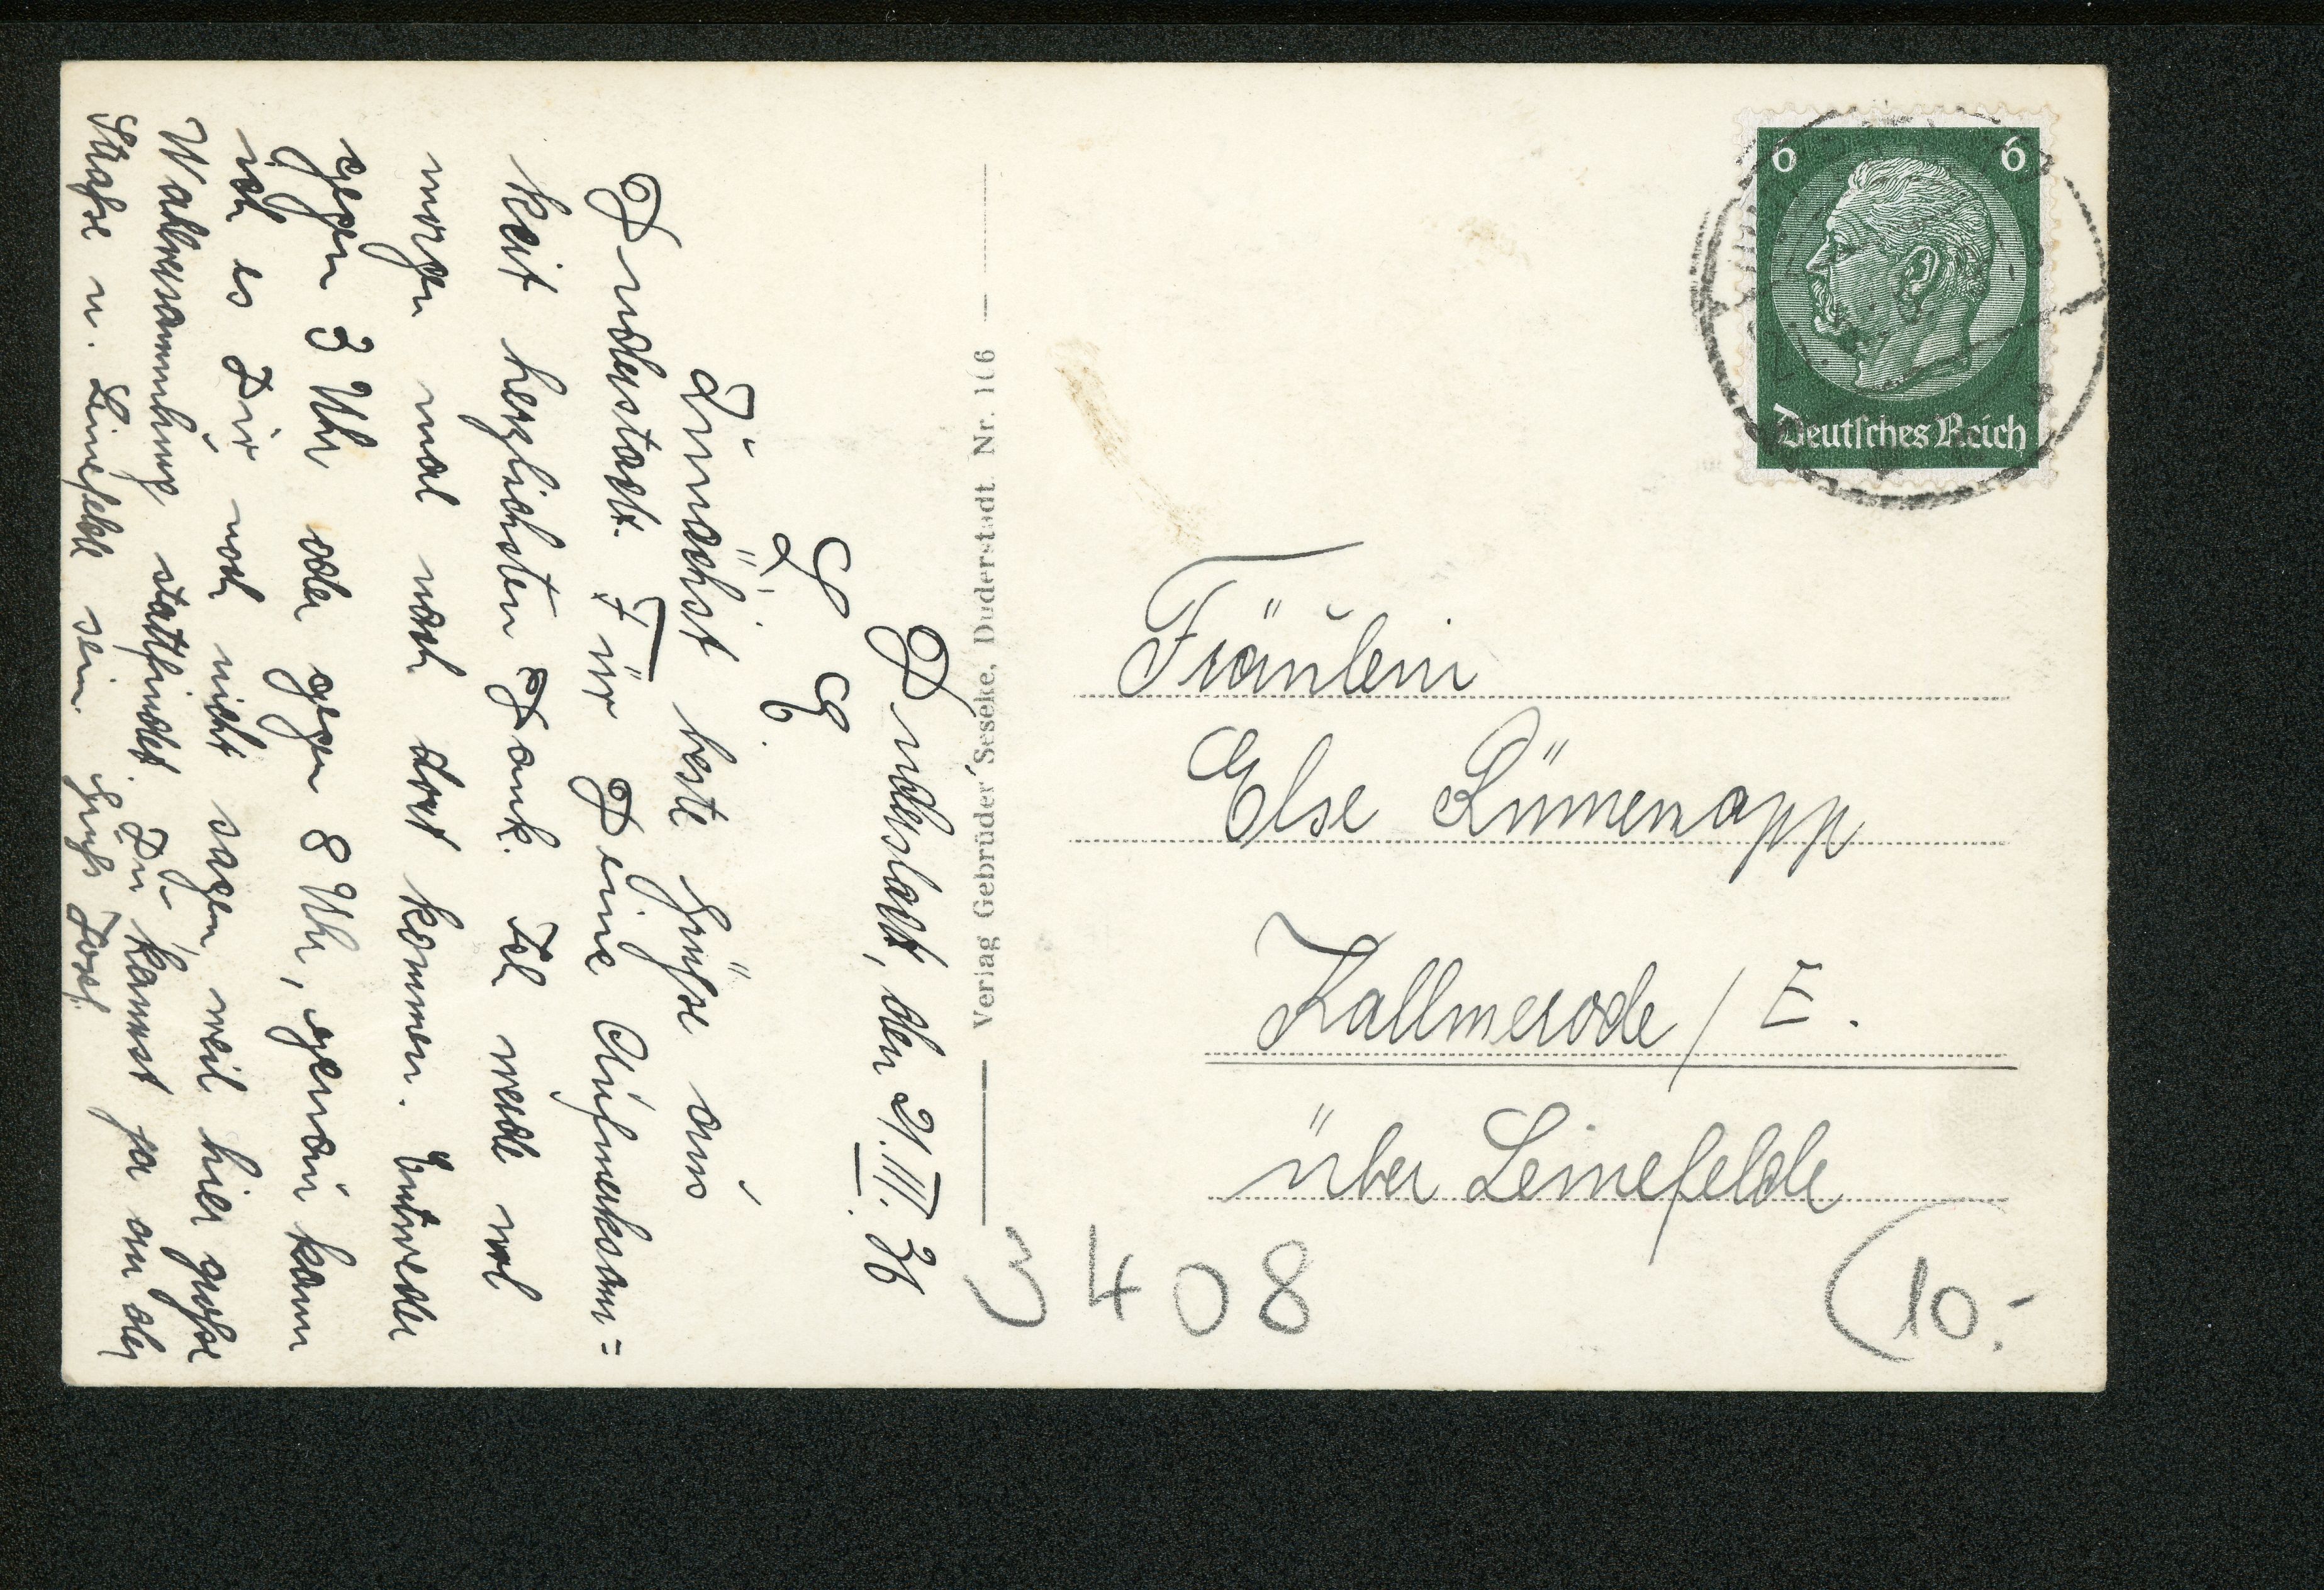 Duderstadt, den 21.III.36
L. E.
Zunächst beste Grüße aus
Duderstadt. Für Deine Aufmerksam=
keit herzlichsten Dank. Ich werde wol
morgen mal nach dort kommen. Entweder
gegen 3 Uhr oder gegen 8 Uhr, genau kann
ich es Dir noch nicht sagen, weil hier große
Wahlversammlung stattfindet. Du kannst ja an der
Straße n. Leinefelde sein. Gruß Josef.
Verlag Gebrüder Seseke, Duderstadt Nr. 106
6 6
Deutsches Reich
Fräulein
Else Rümenapp
Kallmerode / E.
über Leinefelde
3408
10.-